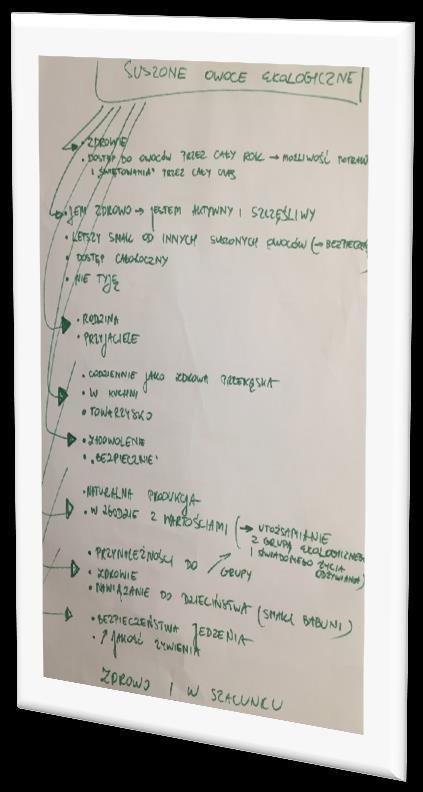 SUSZONE OWOCE EKOLOGICZNE
• ZDROWIE
• DOSTĘP DO OWOCÓW PRZEZ CAŁY ROK → MOŻLIWOŚĆ POTRAW
I "ŚWIĘTOWANIA" PRZEZ CAŁY CZAS
• JEM ZDROWO → JESTEM AKTYWNY I SZCZĘŚLIWY
• LEPSZY SMAK OD INNYCH SUSZONYCH OWOCÓW (→ BEZPIECZEŃ
• DOSTĘP CAŁOROCZNY
• NIE TYJĘ
• RODZINA
• PRZYJACIELE
• CODZIENNIE JAKO ZDROWA PRZEKĄSKA
• W KUCHNI
• TOWARZYSKO
• ZADOWOLENIE
• "BEZPIECZNIE"
• NATURALNA PRODUKCJA
• W ZGODZIE Z WARTOŚCIAMI (→ UTOŻSAMIANIE
Z GRUPĄ EKOLOGICZNEGO
I ŚWIADOMEGO ŻYCIA
ODŻYWIANIA)
• PRZYNALEŻNOŚCI DO GRUPY
• ZDROWIE
• NAWIĄZANIE DO DZIECIŃSTWA (SMAKI BABUNI)
• BEZPIECZEŃSTWA JEDZENIA
• ↑ JAKOŚĆ ŻYWIENIA
ZDROWO I W SZACUNKU